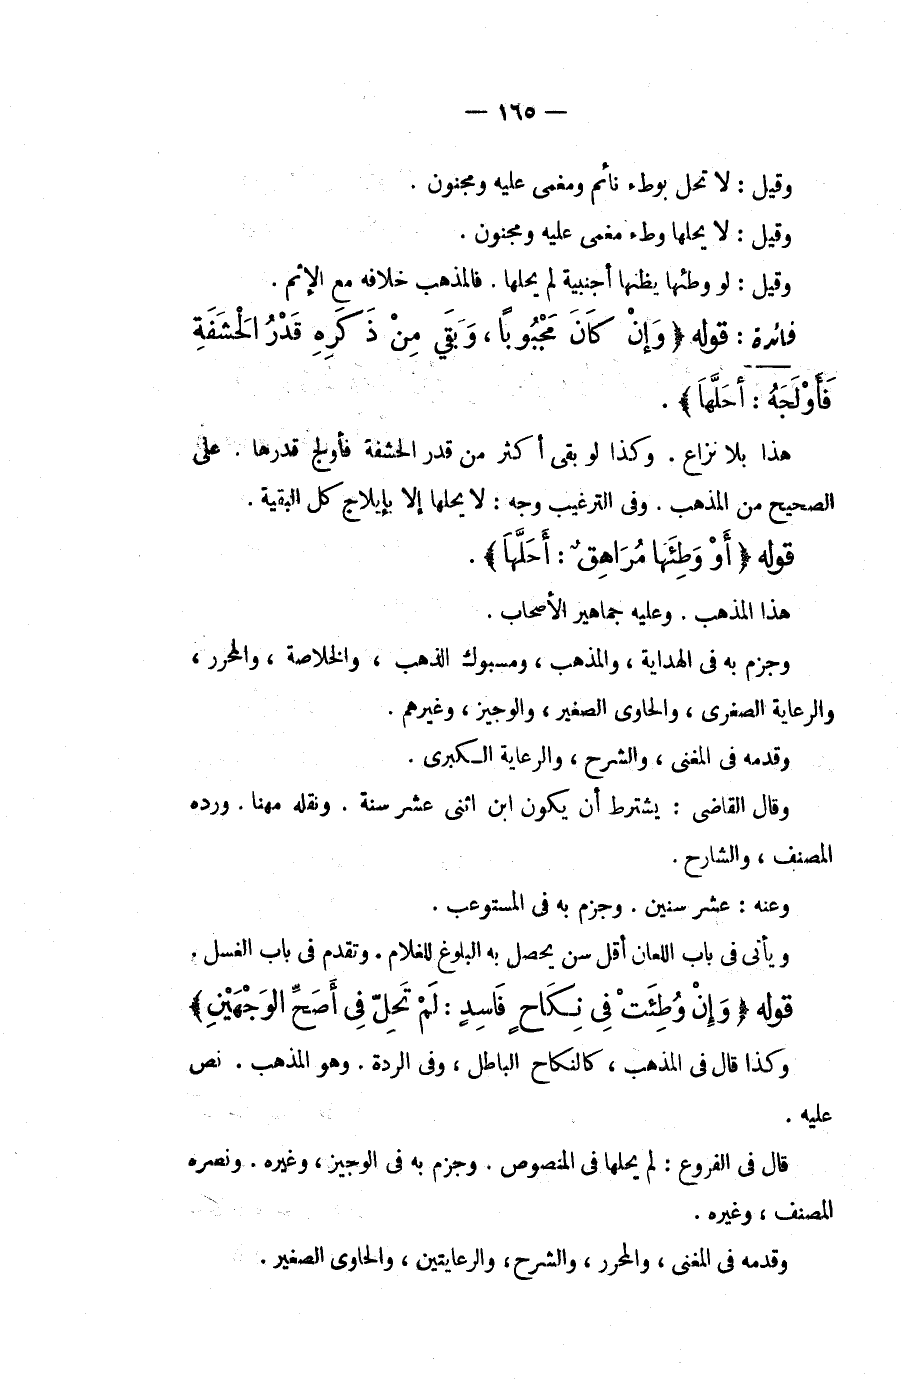 — ١٦٥ —
وقيل : لا تحل بوطء نائم ومغمى عليه ومجنون .
وقيل : لا يحلها وطء مغمى عليه ومجنون .
وقيل : لو وطئها يظنها أجنبية لم يحلها . فالمذهب خلافه مع الإثم .
فائدة : قوله ﴿ وَإِنْ كَانَ مَجْبُوبًا ، وَبَقَي مِنْ ذَكَرِهِ قَدْرُ الحَشَفَةِ
فَأَوْلَجَهُ : أَحَلَّهَا ﴾ .
هذا بلا نزاع . وكذا لو بقى أكثر من قدر الحشفة فأولج قدرها . على
الصحيح من المذهب . وفى الترغيب وجه : لا يحلها إلا بإيلاج كل البقية .
قوله ﴿ أَوْ وَطِئَهَا مُرَاهِقٌ : أَحَلَّهَا ﴾ .
هذا المذهب . وعليه جماهير الأصحاب .
وجزم به فى الهداية ، والمذهب ، ومسبوك الذهب ، والخلاصة ، والمحرر ،
والرعاية الصغرى ، والحاوى الصغير ، والوجيز ، وغيرهم .
وقدمه فى المغنى ، والشرح ، والرعاية الـكبرى .
وقال القاضى : يشترط أن يكون ابن اثنى عشر سنة . ونقله مهنا . ورده
المصنف ، والشارح .
وعنه : عشر سنين . وجزم به فى المستوعب .
ويأتى فى باب اللعان أقل سن يحصل به البلوغ للغلام . وتقدم فى باب الغسل .
قوله ﴿ وَإِنْ وُطِئَتْ فِي نِـكَاحٍ فَاسِدٍ : لَمْ تَحِلّ فِي أَصَحِّ الوَجْهَيْنِ ﴾
وكذا قال فى المذهب ، كالنكاح الباطل ، وفى الردة . وهو المذهب . نص
عليه .
قال فى الفروع : لم يحلها فى المنصوص . وجزم به فى الوجيز ، وغيره . ونصره
المصنف ، وغيره .
وقدمه فى المغنى ، والمحرر ، والشرح ، والرعايتين ، والحاوى الصغير .